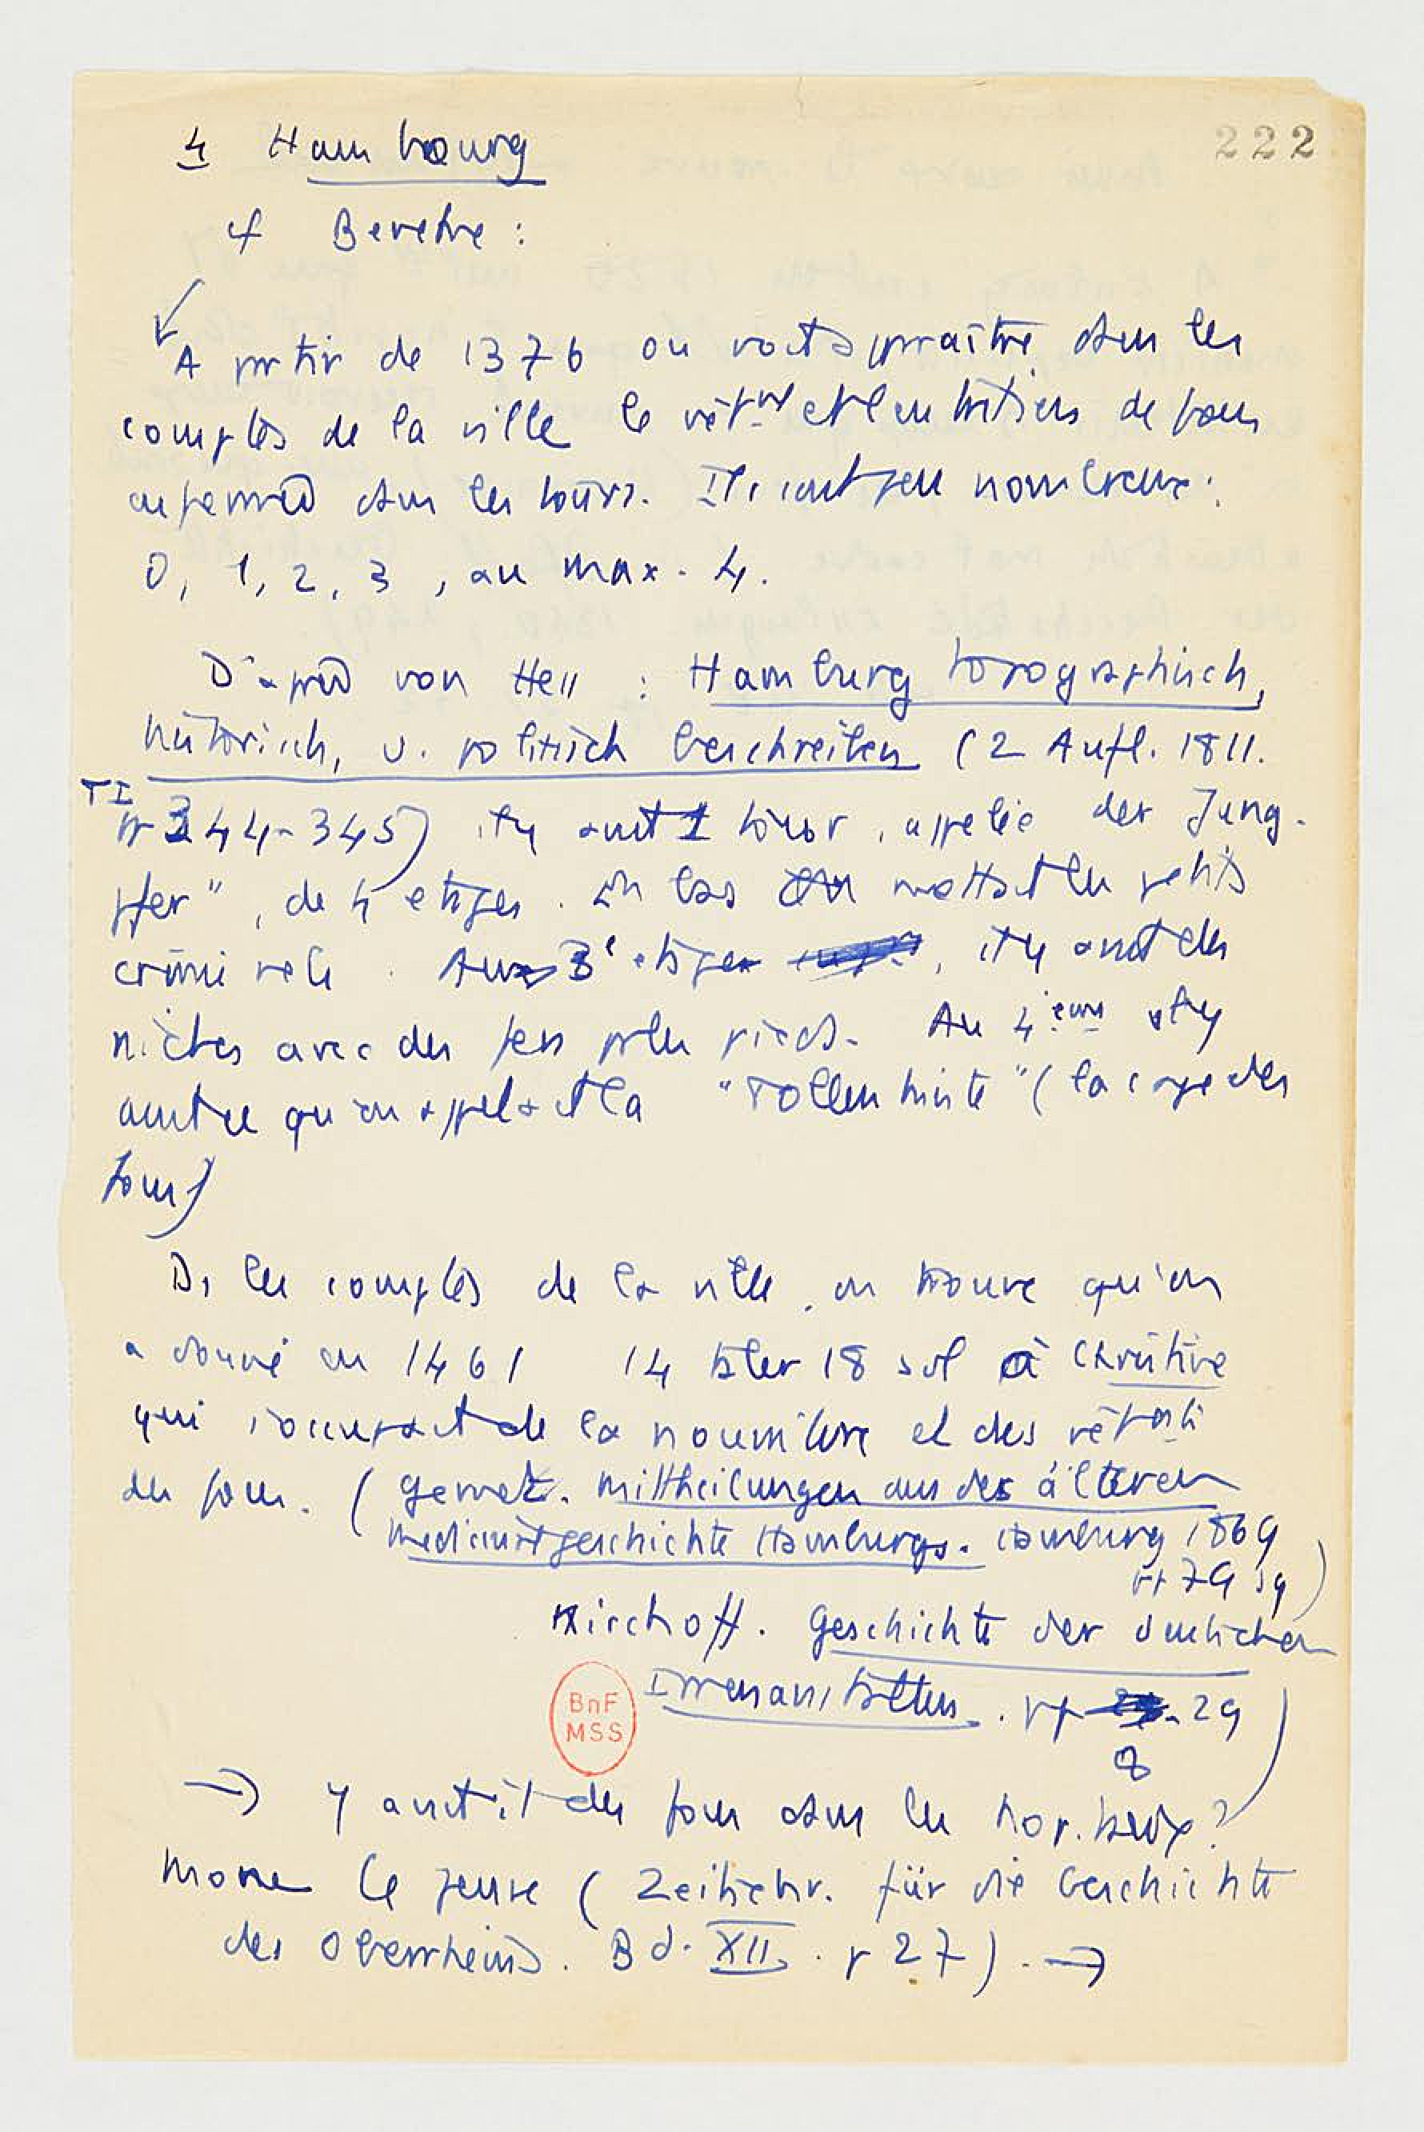 222
4 Hambourg
cf Beneke :
A partir de 1376 on voit apparaître dans les
comptes de la ville le vêt et l'entretien de fous
enfermés dans les tours. Ils sont peu nombreux :
0, 1, 2, 3, au max. 4.
D'après von Hess : Hamburg topographisch,
historisch, u. politisch beschreiben (2 Aufl. 1811.
TI
pp 344-345) il y avait 1 tour, appelée der Jung-
fer", de 4 etages. En bas on mettait les petits
criminels. Au 3e etage, il y avait des
niches avec des fers pour les pieds. Au 4ieme il y
autre qu'on appelait la "Tollenkiste" (la cage des
fous)
Ds les comptes de la ville, on trouve qu'on
a donné en 1461 14 taler 18 sol à Christine
qui s'occupait de la nourriture et des vêtmts
des fous. (Gernet. Mittheilungen aus der älteren
Medicinalgeschichte Hamburgs. Hamburg 1869
pp 79 sq)
Kirchoff. Geschichte der deutschen
Irrenanstalten. pp - 29
8
BnF
MSS
→ Y avait-il des fous dans les hopitaux ?
Mone le pense (Zeitschr. für die Geschichte
des Oberrheins. Bd. XII. p 27). →